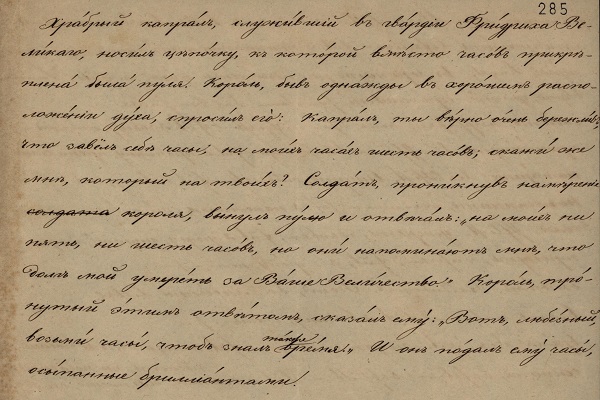 285
Хра́брый капра́лъ, служи́вшій въ гва́рдіи Фри́дриха Ве-
ли́каго, носи́лъ цѣпо́чку, къ кото́рой вмѣ́сто часо́въ прикрѣ-
плена́ была́ пу́ля. Коро́ль, бывъ одна́жды въ хоро́шемъ распо-
ложе́ніи ду́ха, спроси́лъ его́: Капра́лъ, ты вѣ́рно о́чень бережли́въ,
что завёлъ себѣ часы́; на мои́хъ часа́хъ шесть часо́въ; скажи́ же
мнѣ, кото́рый на твои́хъ? Солда́тъ, прони́кнувъ намѣ́реніе
солдата короля́, вы́нулъ пу́лю и отвѣча́лъ: „на мои́хъ ни
пять, ни шесть часо́въ, но они́ напомина́ютъ мнѣ, что
долгъ мой умере́ть за Ва́ше Вели́чество.“ Коро́ль, тро́-
нутый э́тимъ отвѣ́томъ, сказа́лъ ему́: „Вотъ, любе́зный,
возьми́ часы́, чтобъ зналъ та́кже вре́мя.“ И онъ по́далъ ему́ часы́,
осы́панные брилліа́нтами.